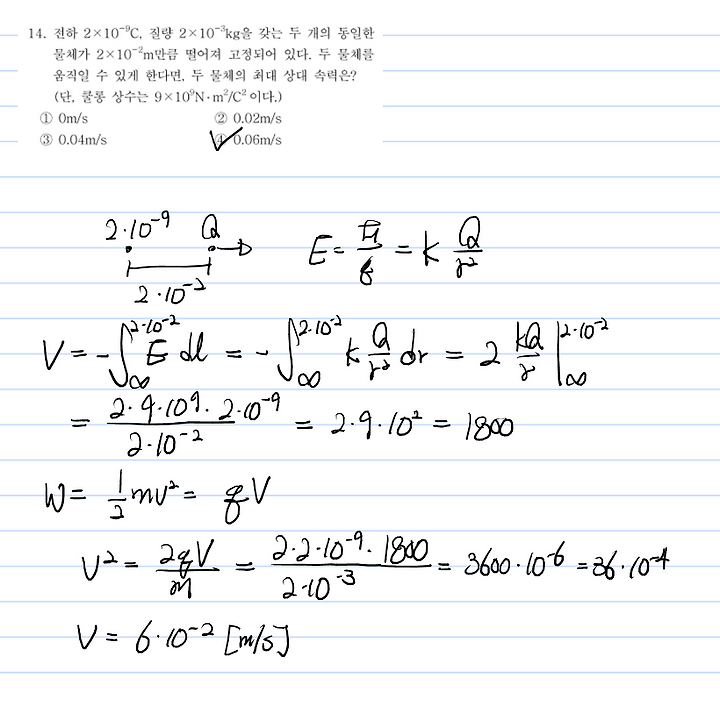 14. 전하 2×10⁻⁹C, 질량 2×10⁻³kg을 갖는 두 개의 동일한
물체가 2×10⁻²m만큼 떨어져 고정되어 있다. 두 물체를
움직일 수 있게 한다면, 두 물체의 최대 상대 속력은?
(단, 쿨롱 상수는 9×10⁹N·m²/C² 이다.)
① 0m/s ② 0.02m/s
③ 0.04m/s ④ 0.06m/s
2·10⁻⁹ Q
2·10⁻²
E = F/q = k Q/r²
V = -∫_∞^{2·10⁻²} E dl = -∫_∞^{2·10⁻²} k Q/r² dr = 2 kQ/r |_∞^{2·10⁻²}
= 2·9·10⁹·2·10⁻⁹ / 2·10⁻² = 2·9·10² = 1800
W = 1/2 mv² = qV
V² = 2qV/m = 2·2·10⁻⁹·1800 / 2·10⁻³ = 3600·10⁻⁶ = 36·10⁻⁴
V = 6·10⁻² [m/s]